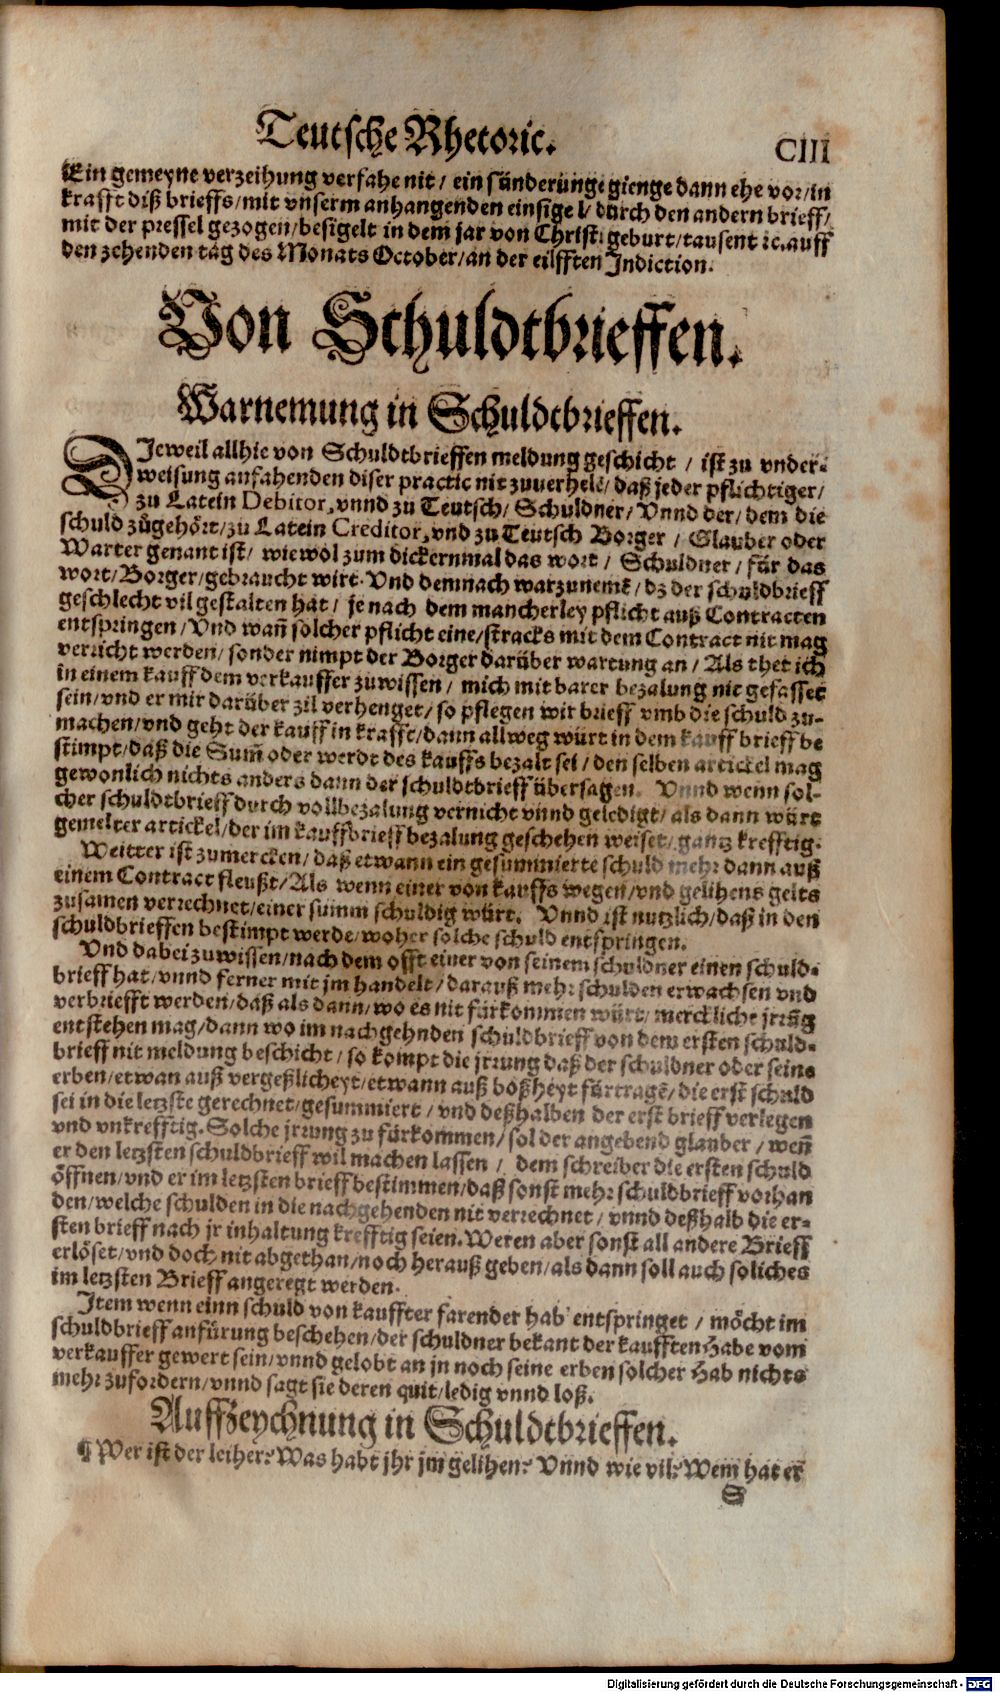 Teutsche Rhetoric. CIII
Ein gemeyne verzeihung verfahe nit / ein sünderunge gienge dann ehe vor / in
krafft diß brieffs / mit vnserm anhangenden einsigel / durch den andern brieff /
mit der pressel gezogen / besigelt in dem jar von Christi geburt / tausent ꝛc. auff
den zehenden tag des Monats October / an der eilfften Indiction.
Von Schuldtbrieffen.
Warnemung in Schuldtbrieffen.
DJeweil allhie von Schuldtbrieffen meldung geschicht / ist zu vnder-
weisung anfahenden diser practic nit zuuerhelē / daß jeder pflichtiger /
zu Latein Debitor, vnnd zu Teutsch / Schuldner / Vnnd der / dem die
schuld zůgehört / zu Latein Creditor, vnd zu Teutsch Borger / Glauber oder
Warter genant ist / wiewol zum dickernmal das wort / Schuldner / für das
wort / Borger / gebraucht wirt. Vnd demnach warzunemē / dz der schuldbrieff
geschlecht vil gestalten hat / je nach dem mancherley pflicht auß Contracten
entspringen / Vnd wañ solcher pflicht eine / stracks mit dem Contract nit mag
verricht werden / sonder nimpt der Borger darüber wartung an / Als thet ich
in einem kauff dem verkauffer zuwissen / mich mit barer bezalung nit gefasset
sein / vnd er mir darüber zil verhenget / so pflegen wir brieff vmb die schuld zu-
machen / vnd geht der kauff in krafft / dann allweg würt in dem kauff brieff be
stimpt / daß die Sum̃ oder werdt des kauffs bezalt sei / den selben artickel mag
gewonlich nichts anders dann der schuldtbrieff übersagen. Vnnd wenn sol-
cher schuldtbrieff durch vollbezalung vernicht vnnd geledigt / als dann würt
gemelter artickel / der im kauffbrieff bezalung geschehen weiset / gantz krefftig.
Weitter ist zumercken / daß etwann ein gesummierte schuld mehr dann auß
einem Contract fleußt / Als wenn einer von kauffs wegen / vnd gelihens gelts
zusamen verrechnet / einer summ schuldig würt. Vnnd ist nutzlich / daß in den
schuldbrieffen bestimpt werde / woher solche schuld entspringen.
Vnd dabei zuwissen / nach dem offt einer von seinem schuldner einen schuld-
brieff hat / vnnd ferner mit jm handelt / darauß mehr schulden erwachsen vnd
verbriefft werden / daß als dann / wo es nit fürkommen würt / merckliche jrrũg
entstehen mag / dann wo im nachgehnden schuldbrieff von dem ersten schuld-
brieff nit meldung beschicht / so kompt die jrrung daß der schuldner oder seine
erben / etwan auß vergeßlicheyt / etwann auß boßheyt fürtragē / die erst schuld
sei in die letzste gerechnet / gesummiert / vnd deßhalben der erst brieff verlegen
vnd vnkrefftig. Solche jrrung zu fürkommen / sol der angebend glauber / weñ
er den letzsten schuldbrieff wil machen lassen / dem schreiber die ersten schuld
öffnen / vnd er im letzsten brieff bestimmen / daß sonst mehr schuldbrieff vorhan
den / welche schulden in die nachgehenden nit verrechnet / vnnd deßhalb die er-
sten brieff nach jr inhaltung krefftig seien. Weren aber sonst all andere Brieff
erlöset / vnd doch nit abgethan / noch herauß geben / als dann soll auch soliches
im letzsten Brieff angeregt werden.
Item wenn einn schuld von kauffter farender hab entspringet / möcht im
schuldbrieff anfürung beschehen / der schuldner bekant der kaufften Habe vom
verkauffer gewert sein / vnnd gelobt an jn noch seine erben solcher Hab nichts
mehr zufordern / vnnd sagt sie deren quit / ledig vnnd loß.
Auffzeychnung in Schuldtbrieffen.
¶ Wer ist der leiher? Was habt jhr jm gelihen? Vnnd wie vil? Wem hat er
S
Digitalisierung gefördert durch die Deutsche Forschungsgemeinschaft - DFG